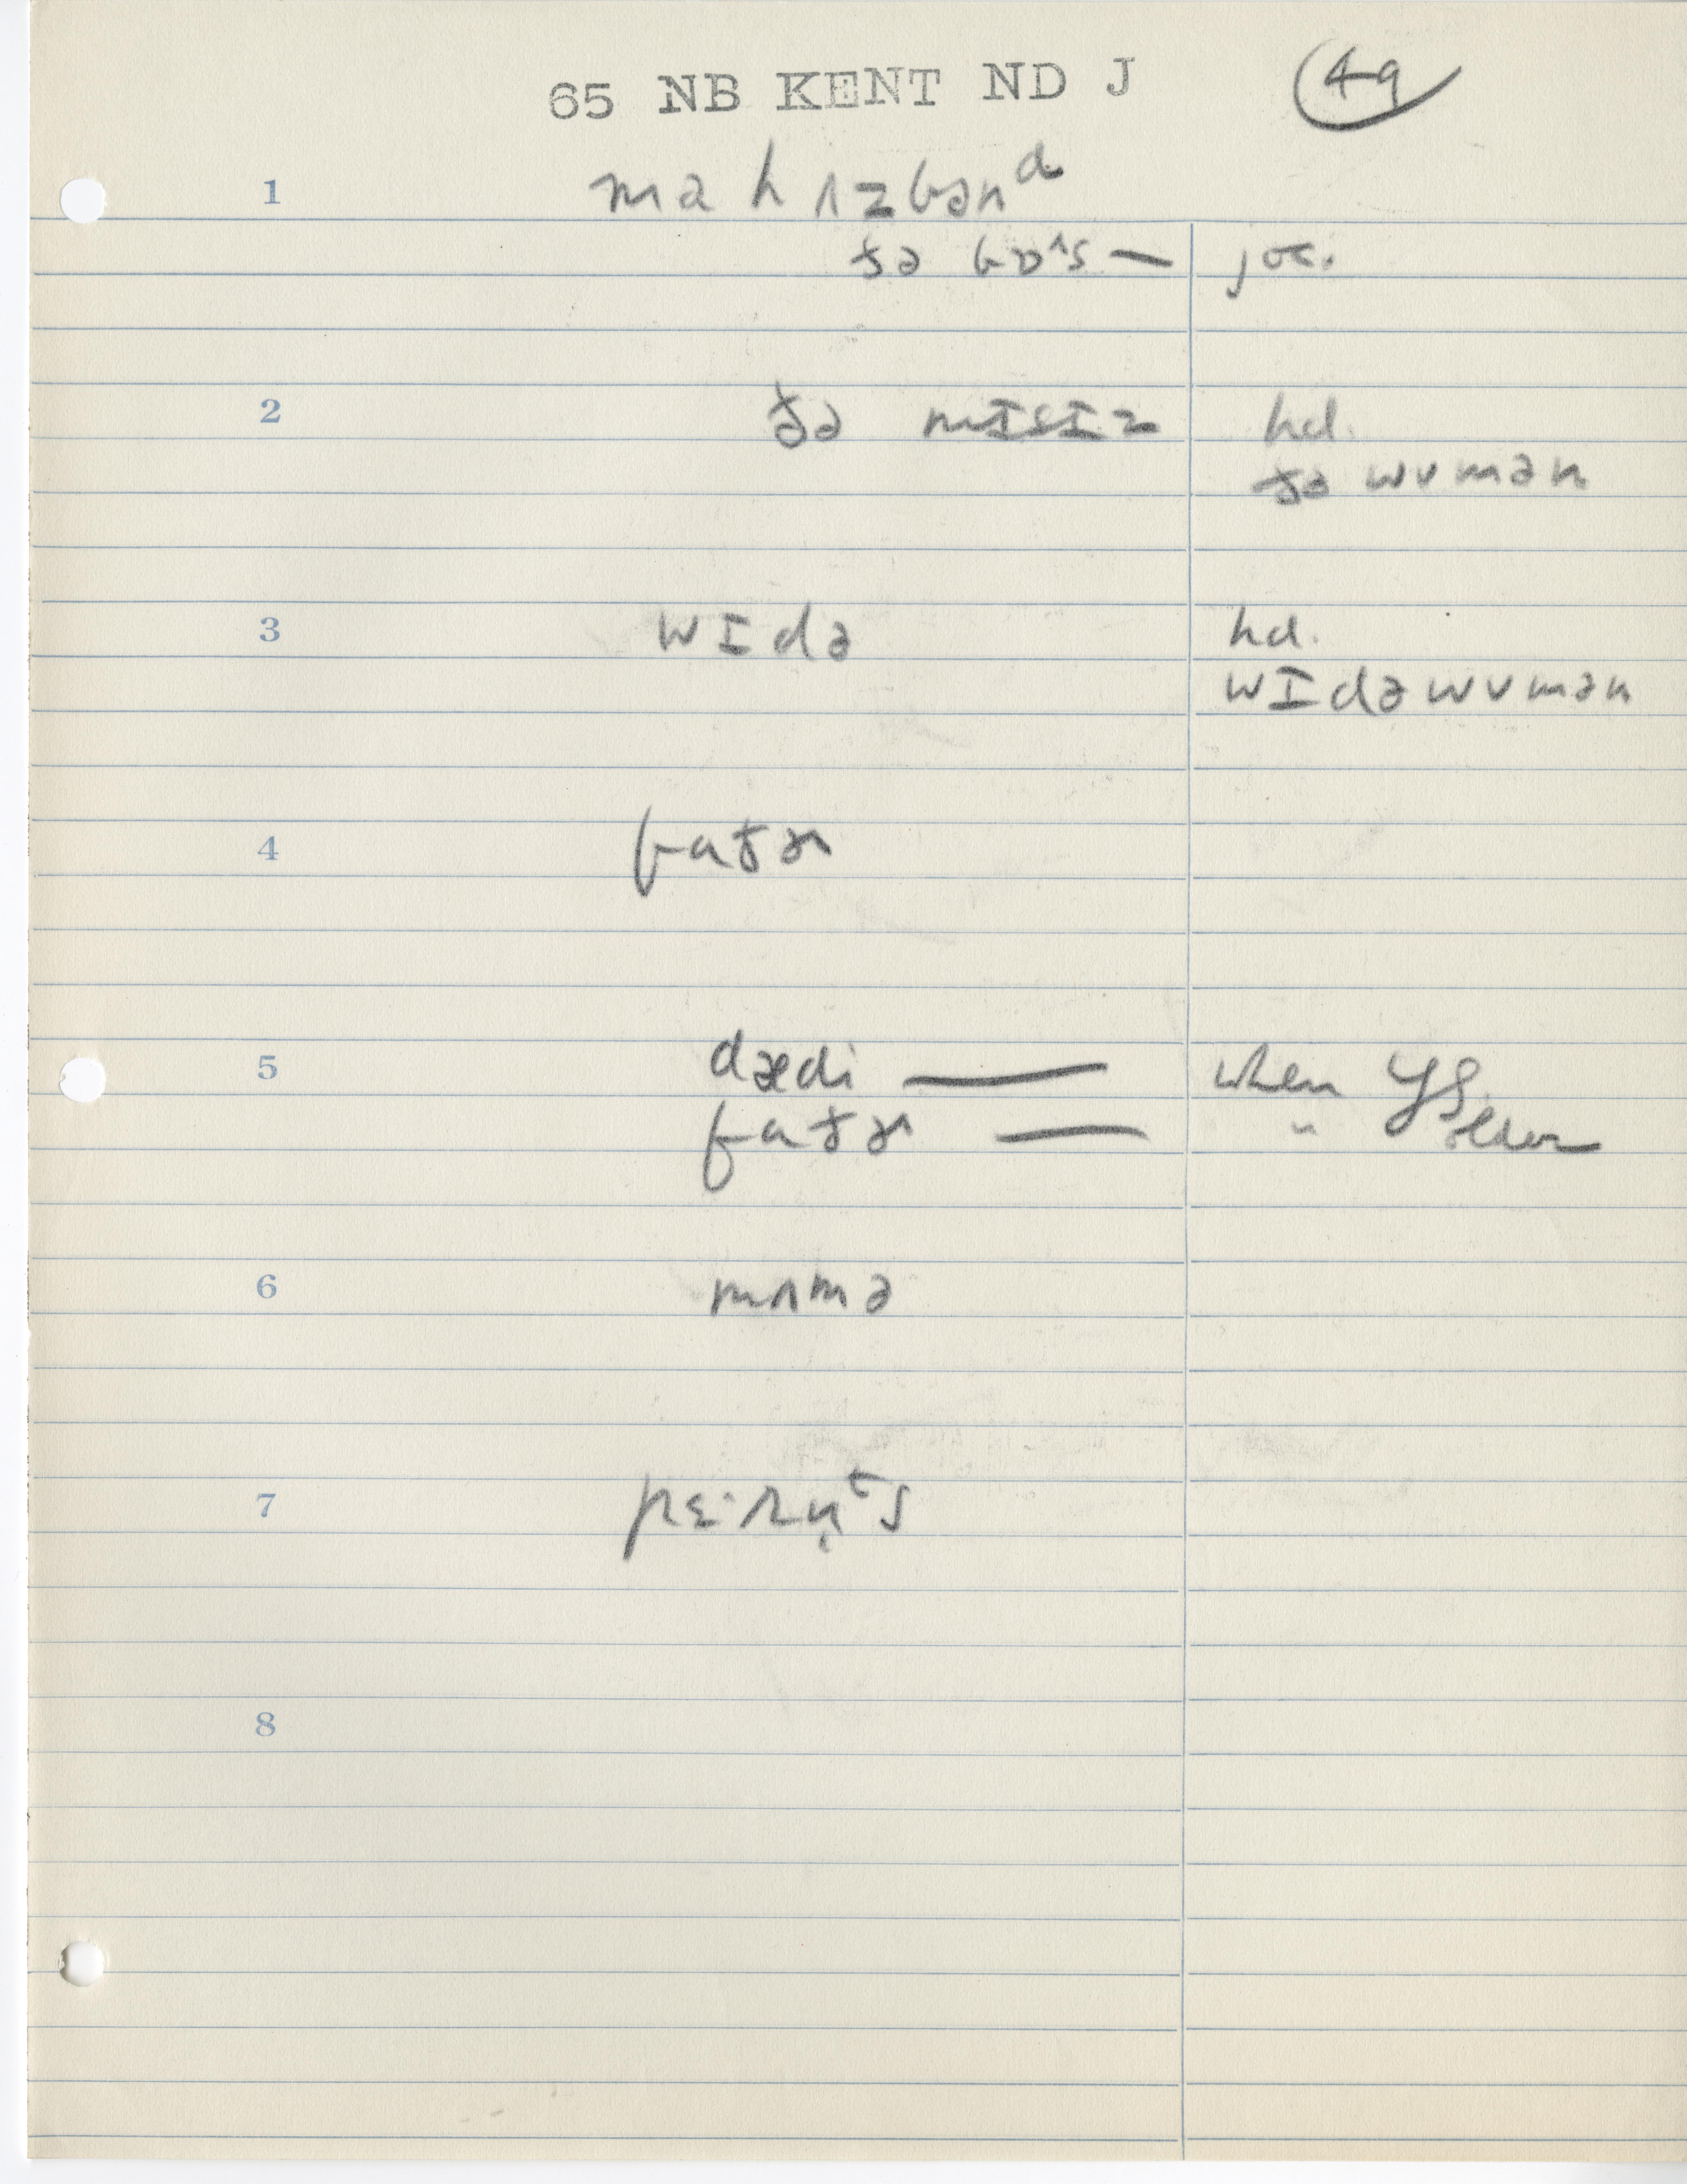 65 NB KENT ND J 49
1 ma hʌzbənᵈ
ðə bɒ^s — joc.
2 ðə mɪsɪz hd.
ðə wʊmən
3 wɪdə hd.
wɪdəwʊmən
4 faðɚ
5 dædi — when yg
faðɚ — " older
6 mʌmə
7 pɛ·rn̩ᵗs
8